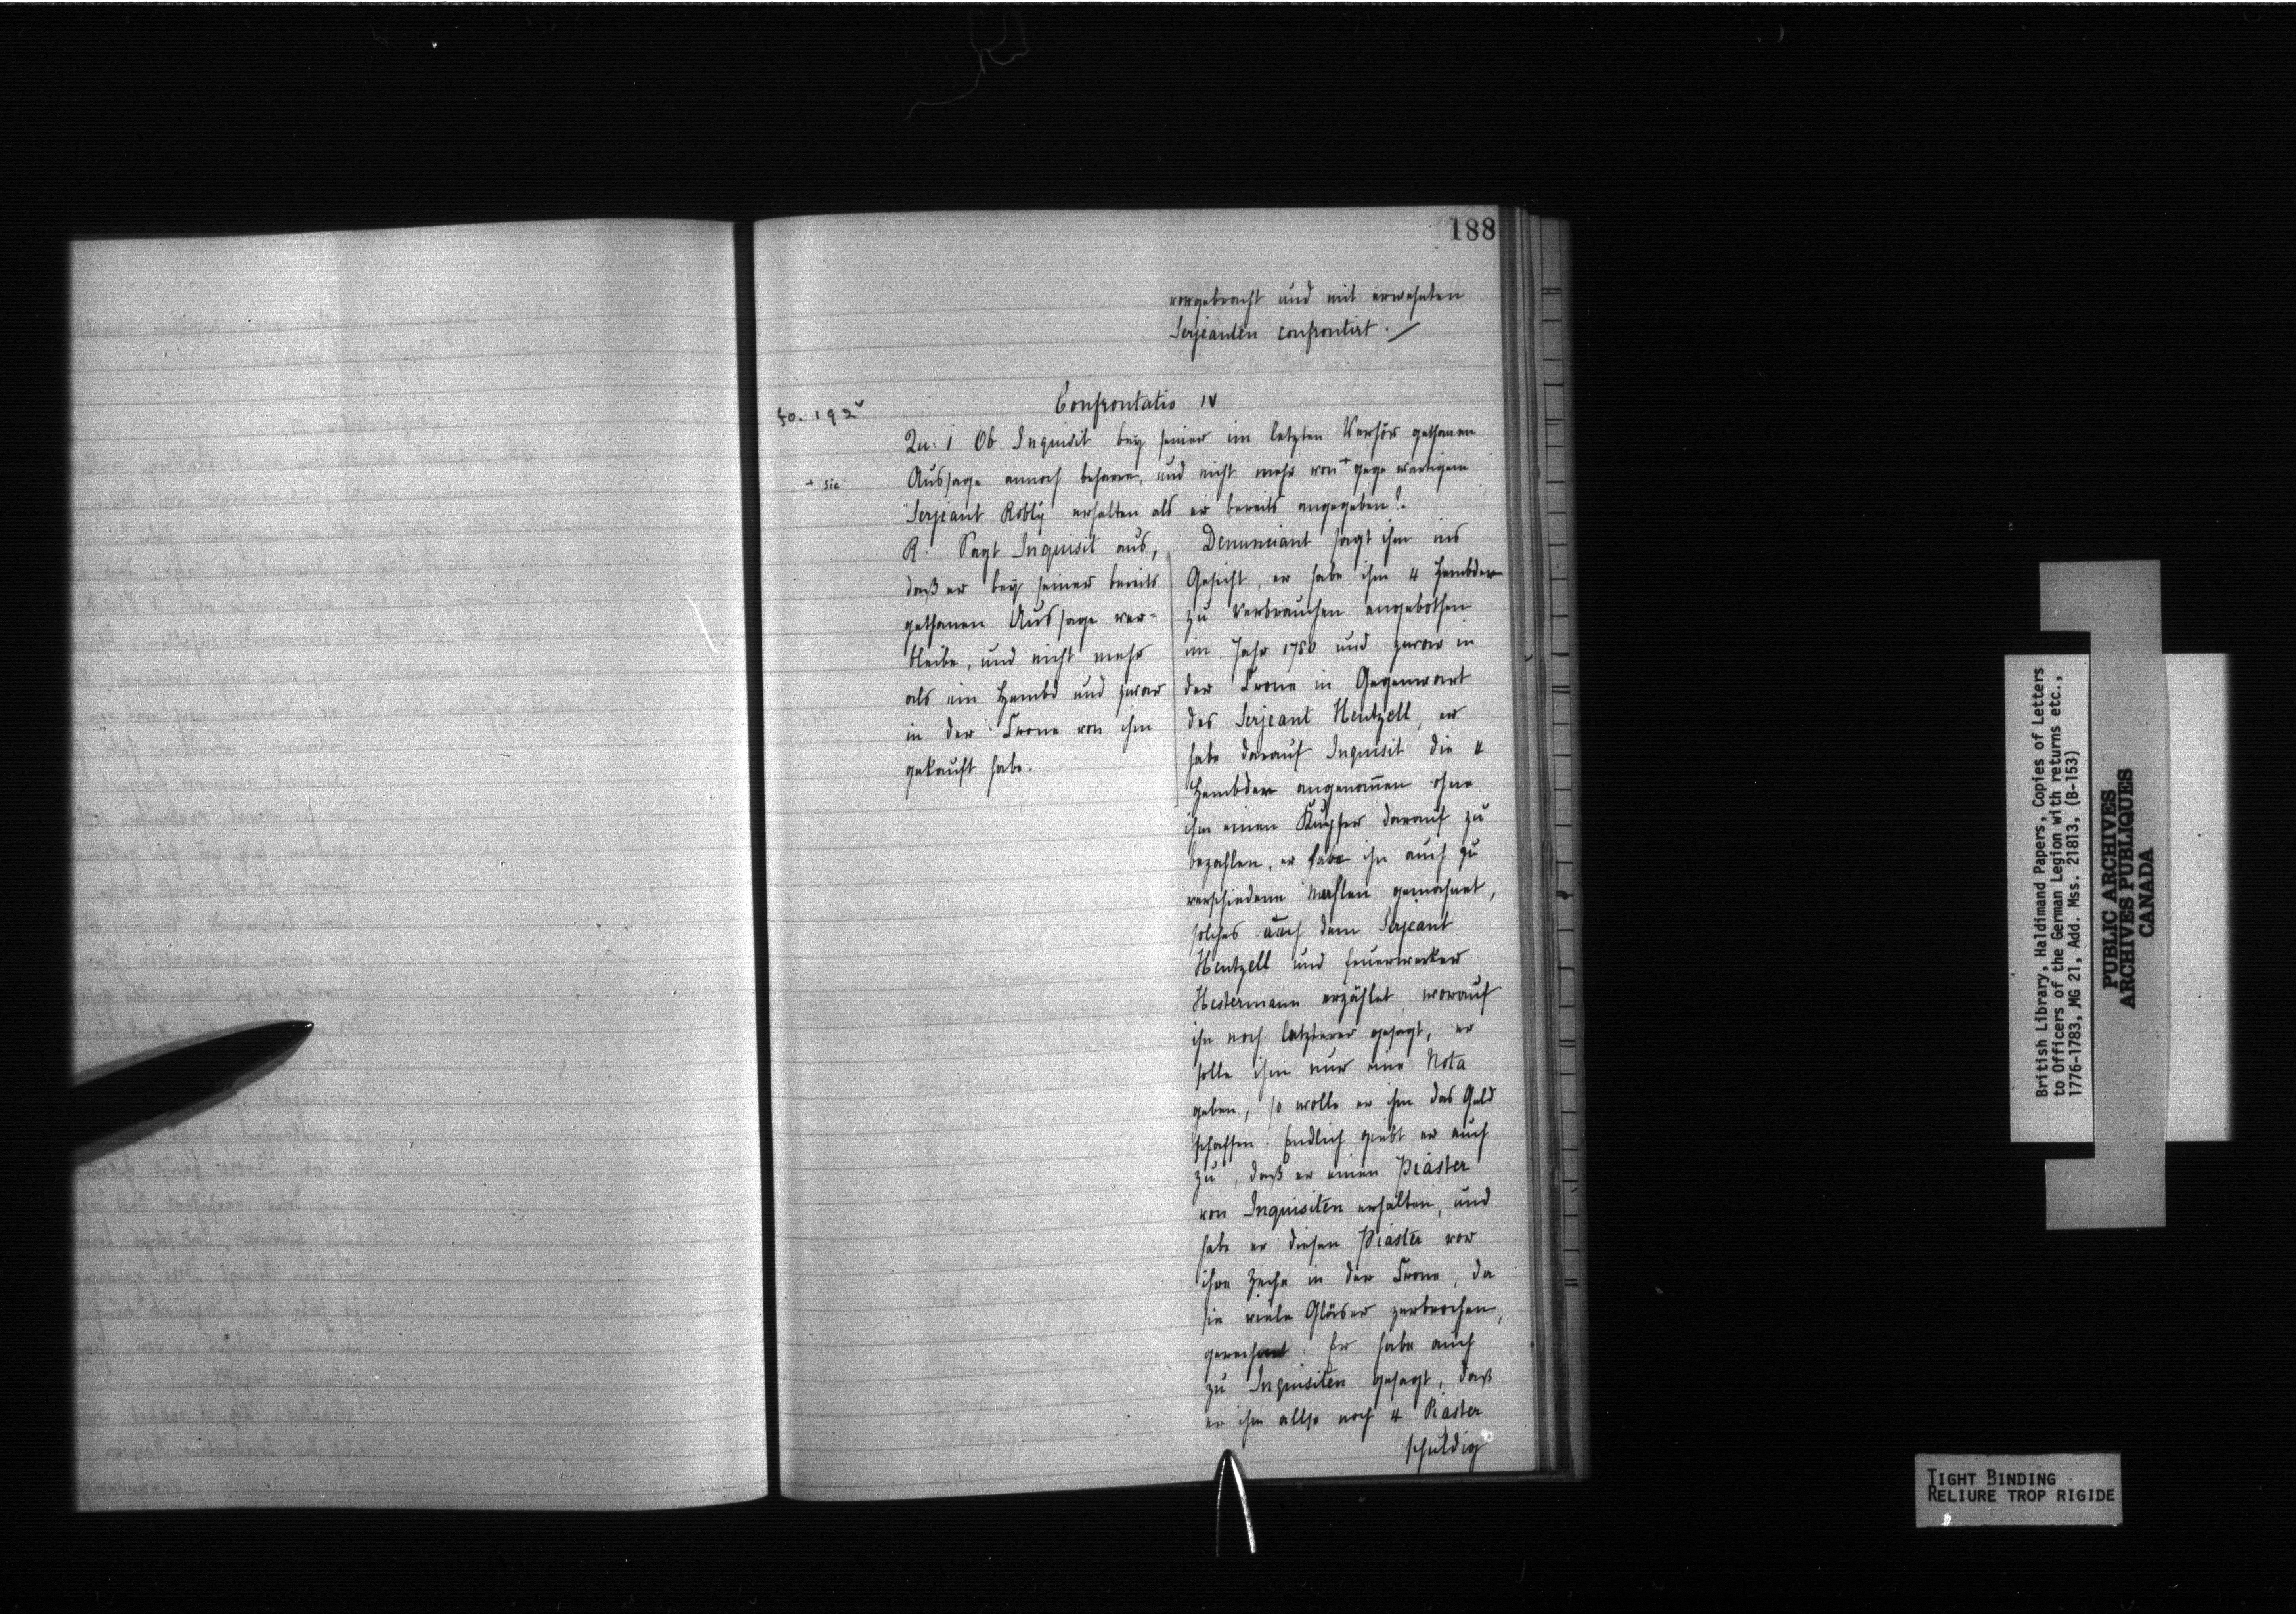 188
vorgebracht und mit erwehnten
Serjeanten confrontirt. /
fo. 192v
Confrontatio IV
Qu: 1 Ob Inquisit beÿ seiner im letzten Verhör gethanen
+ sic
Aussage annoch beharre, und nicht mehr von + gege wärtigem
Serjeant Robly erhalten als er bereits angegeben?
R. Sagt Inquisit aus,
daß er beÿ seiner bereits
gethanen Aussage ver=
bleibe, und nicht mehr
als ein Hembd und zwar
in der Crone von ihm
gekauft habe.
Denunciant sagt ihm ins
Gesicht, er habe ihm 4 Hembder
zu verbrauchen angebothen
im Jahr 1780 und zwar in
der Crone in Gegenwart
des Serjeant Hentzell, er
habe darauf Inquisit die 4
Hembder angenom̄en ohne
ihm einen Kupfer darauf zu
bezahlen, er habe ihn auch zu
verschiedene Mahlen gemahnet,
solches auch dem Serjeant
Hentzell und Feuerwerker
Hestermann erzählet, worauf
ihn noch letzterer gesagt, er
solle ihm nur eine Nota
geben, so wolle er ihm das Geld
schaffen. Endlich giebt er auch
zu, daß er einen Piaster
von Inquisiten erhalten, und
habe er diesen Piaster vor
ihre Zeche in der Crone, da
sie viele Gläser zerbrochen,
gerechnet. Er habe auch
zu Inquisiten gesagt, daß
er ihm also noch 4 Piaster
schuldig
British Library, Haldimand Papers, Copies of Letters
to Officers of the German Legion with returns etc.,
1776-1783, MG 21, Add. Mss. 21813, (B-153)
PUBLIC ARCHIVES
ARCHIVES PUBLIQUES
CANADA
TIGHT BINDING
RELIURE TROP RIGIDE